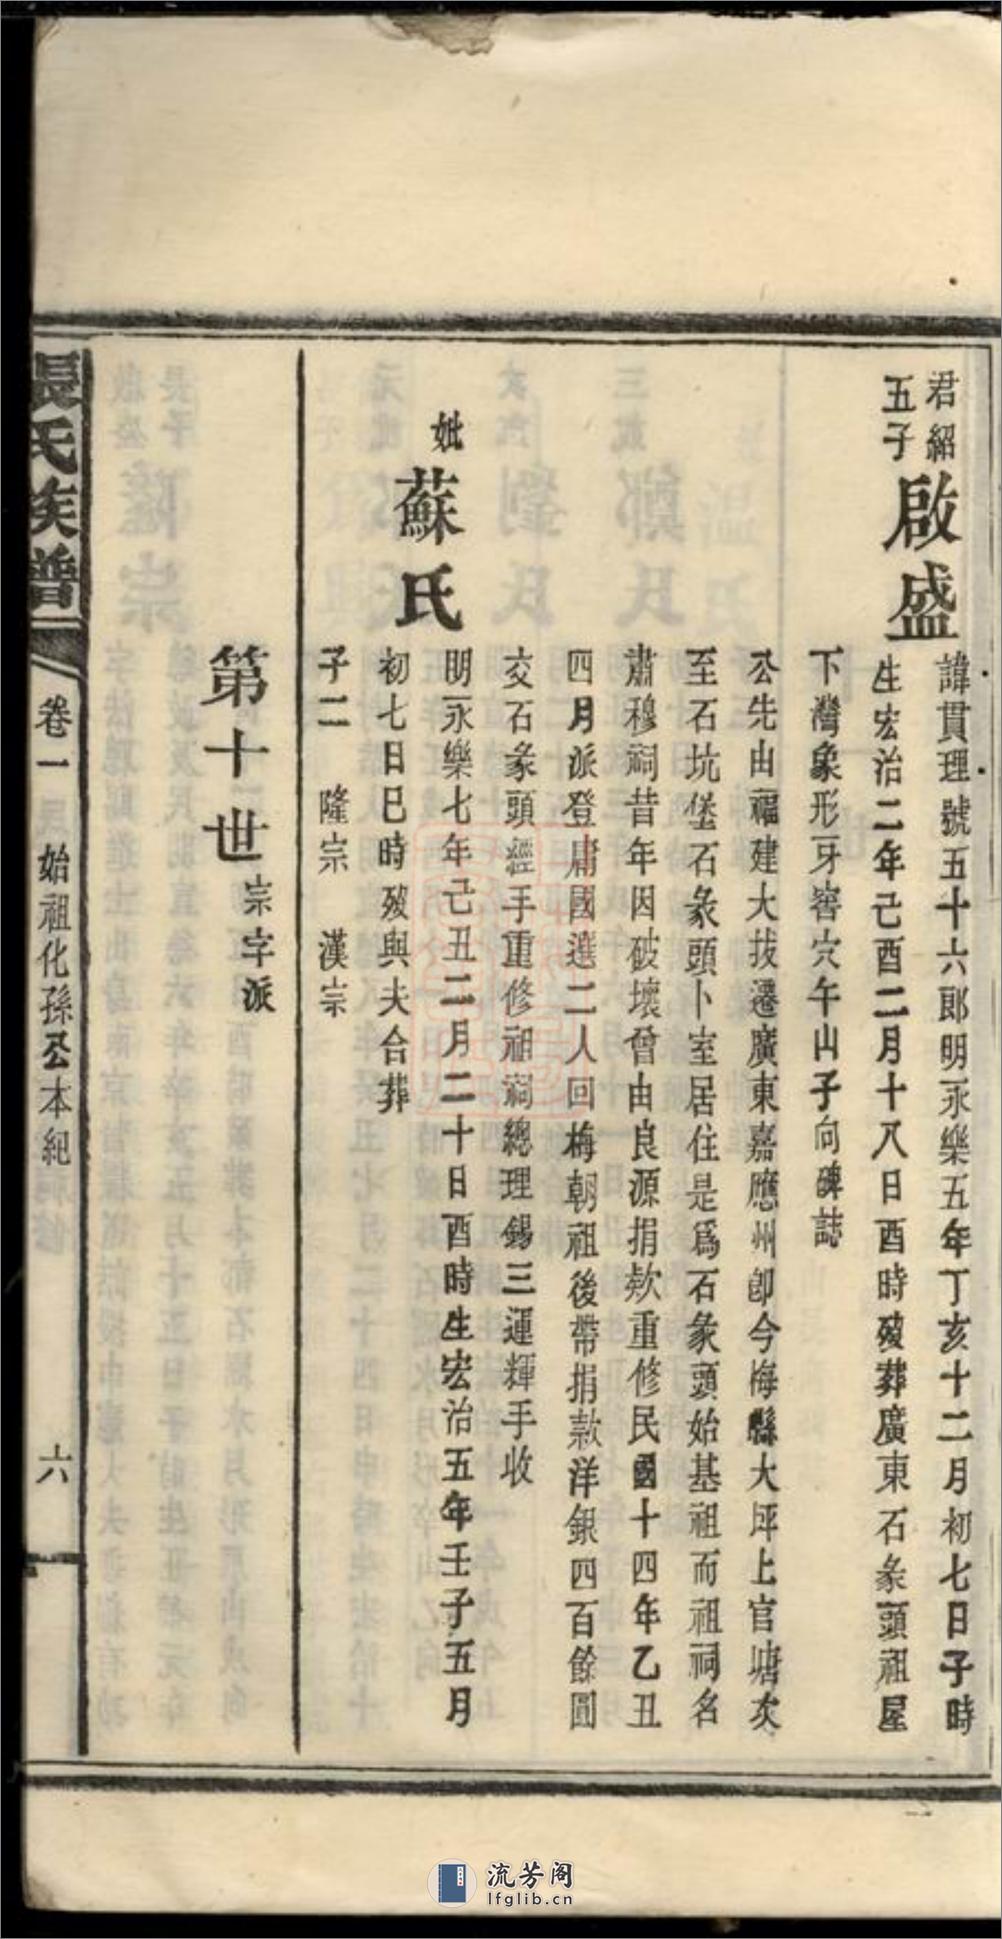 君紹
五子
啟盛
諱貫理號五十六郎明永樂五年丁亥十二月初七日子時
生宏治二年己酉二月十八日酉時歿葬廣東石象頭祖屋
下灣象形牙窖穴午山子向碑誌
公先由福建大拔遷廣東嘉應州卽今梅縣大坪上官塘次
至石坑堡石象頭卜室居住是爲石象頭始基祖而祖祠名
肅穆祠昔年因破壞曾由良源捐欵重修民國十四年乙丑
四月派登庸國選二人回梅朝祖後帶捐款洋銀四百餘圓
交石象頭經手重修祖祠總理錫三運輝手收
妣
蘇氏
明永樂七年己丑二月二十日酉時生宏治五年壬子五月
初七日巳時歿與夫合葬
子二 隆宗 漢宗
第十世 宗字派
張氏族譜
卷一 始祖化孫公本紀
六
流芳阁
lfglib.cn